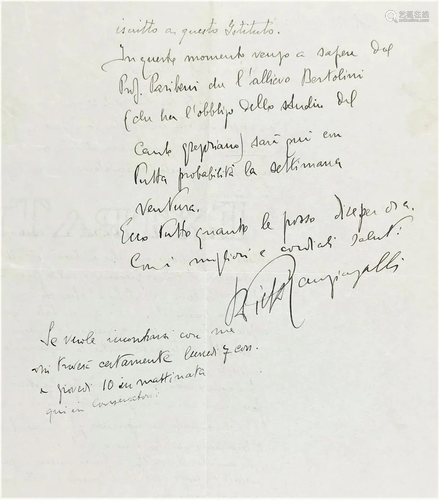 iscritto a questo Istituto.
In questo momento vengo a sapere dal
Prof. Paribeni che l'allievo Bertolini
(che ha l'obbligo dello studio del
Canto gregoriano) sarà qui con
tutta probabilità la settimana
ventura.
Ecco tutto quanto le posso dire per ora.
Con i migliori e cordiali saluti
Pick Mangiagalli
Se vuole incontrarsi con me
mi troverà certamente lunedì 7 corr.
o giovedì 10 in mattinata
qui in Conservatorio
艺狐在线
www.artfoxlive.com